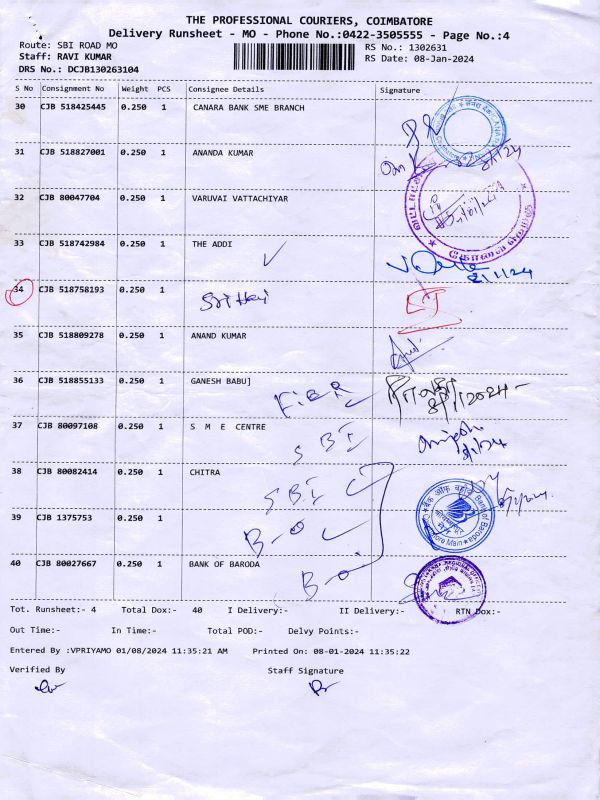 THE PROFESSIONAL COURIERS, COIMBATORE
Delivery Runsheet - MO - Phone No.:0422-3505555 - Page No.:4
Route: SBI ROAD MO RS No.: 1302631
Staff: RAVI KUMAR RS Date: 08-Jan-2024
DRS No.: DCJB130263104
S No Consignment No Weight PCS Consignee Details Signature
30 CJB 518425445 0.250 1 CANARA BANK SME BRANCH
31 CJB 518827001 0.250 1 ANANDA KUMAR
8/1/24
32 CJB 80047704 0.250 1 VARUVAI VATTACHIYAR
33 CJB 518742984 0.250 1 THE ADDI
8/1/24
34 CJB 518758193 0.250 1
35 CJB 518809278 0.250 1 ANAND KUMAR
36 CJB 518855133 0.250 1 GANESH BABU]
8/1/2024
37 CJB 80097108 0.250 1 S M E CENTRE
SBI
38 CJB 80082414 0.250 1 CHITRA
SBI
बैंक ऑफ़ बड़ौदा Bank of Baroda
39 CJB 1375753 0.250 1
B-o
40 CJB 80027667 0.250 1 BANK OF BARODA
B-o
Tot. Runsheet:- 4 Total Dox:- 40 I Delivery:- II Delivery:- RTN Dox:-
Out Time:- In Time:- Total POD:- Delvy Points:-
Entered By :VPRIYAMO 01/08/2024 11:35:21 AM Printed On: 08-01-2024 11:35:22
Verified By Staff Signature